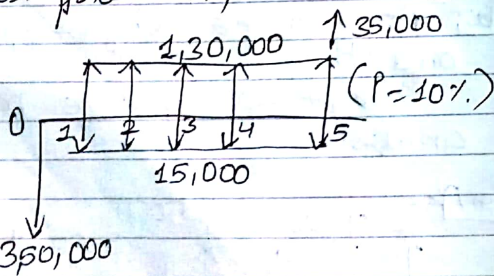 35,000
1,30,000
(P=10%.)
0 1 2 3 4 5
15,000
350,000